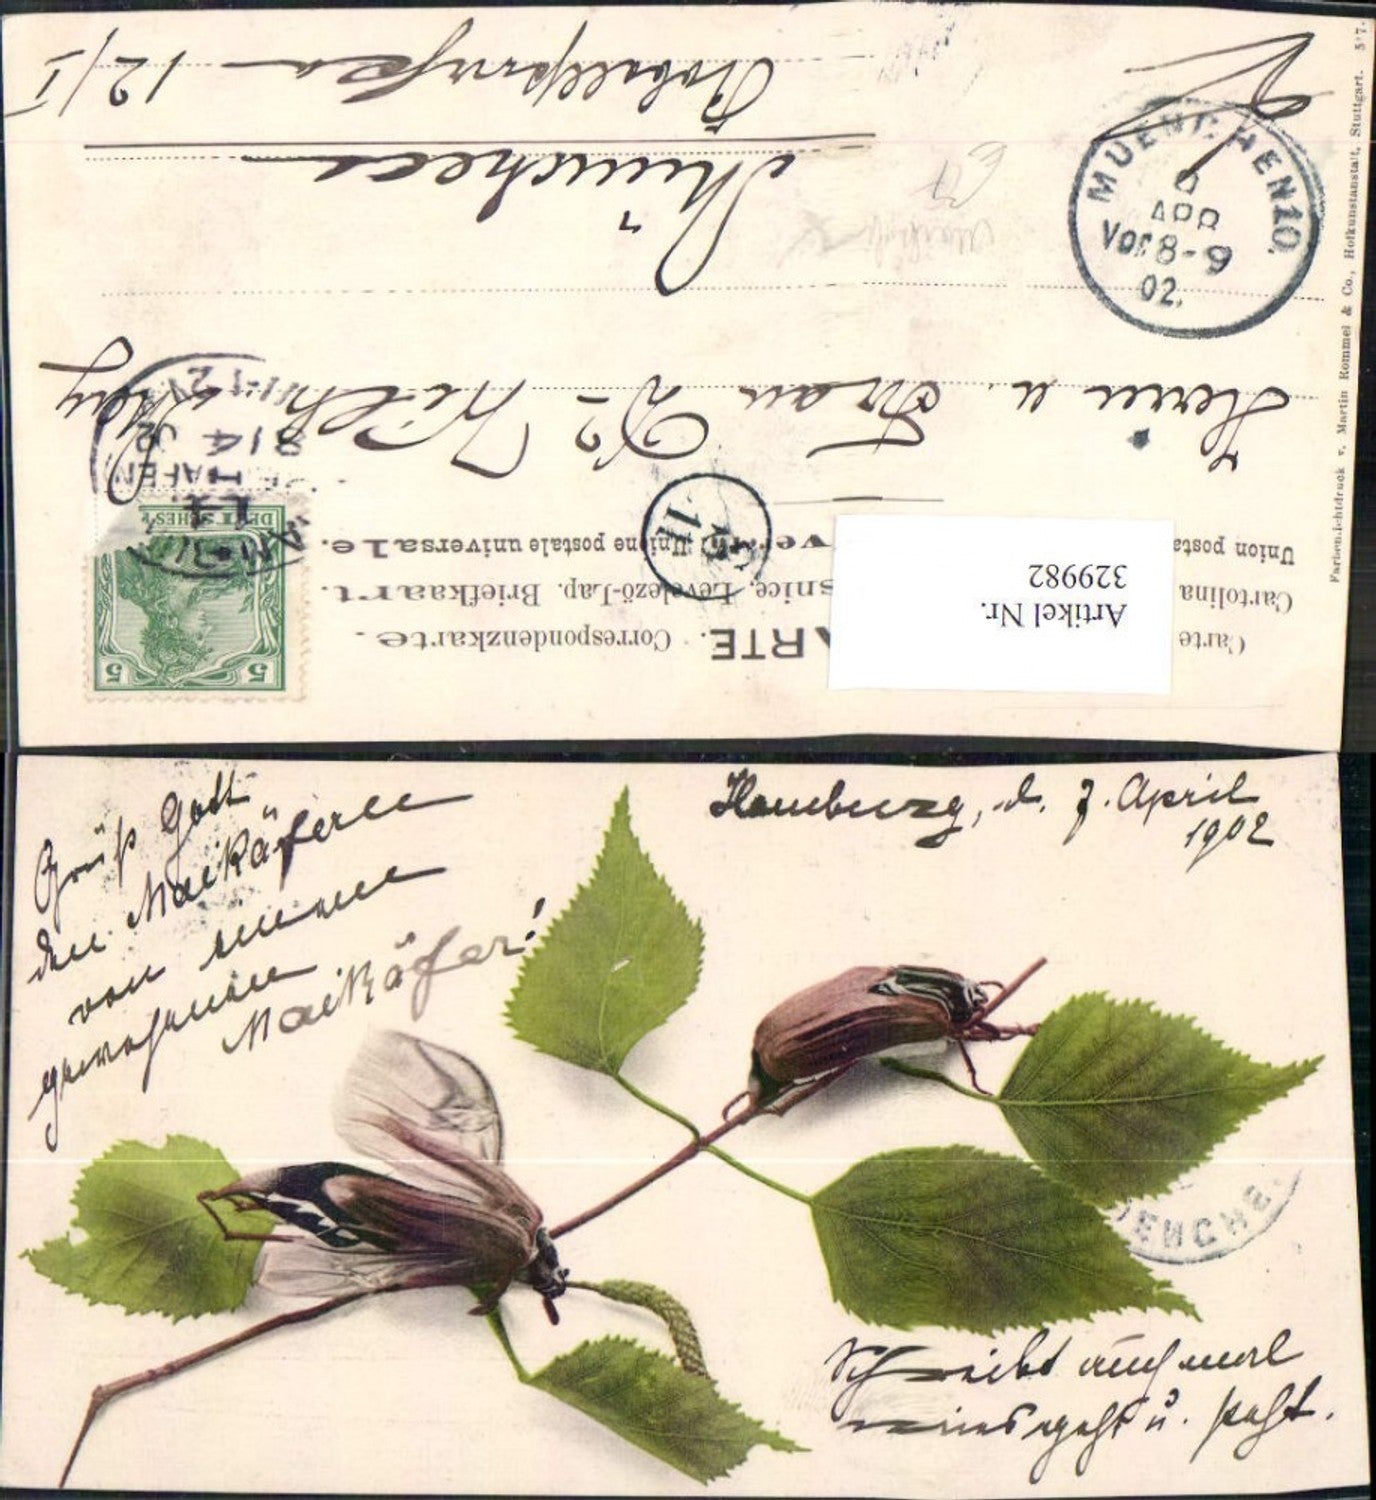 Carte
ARTE. Correspondenzkarte.
Cartolina
snice. Levelező-Lap. Briefkaart.
Union postale universale.
Union post
Artikel Nr.
329982
DEUTSCHES
5 5
Herrn u. Frau Dr
München
12/I
MUENCHEN 10.
APR
Vor 8-9
02.
HAFEN
8/4 02
11-12V
Farbenlichtdruck v. Martin Rommel & Co., Hofkunstanstalt, Stuttgart. 517.
Hamburg, d. 7. April
1902
Grüß Gott
den Maikäfern
von einem
gewesenen
Maikäfer!
Schreibt auch mal
wie's geht u. steht.